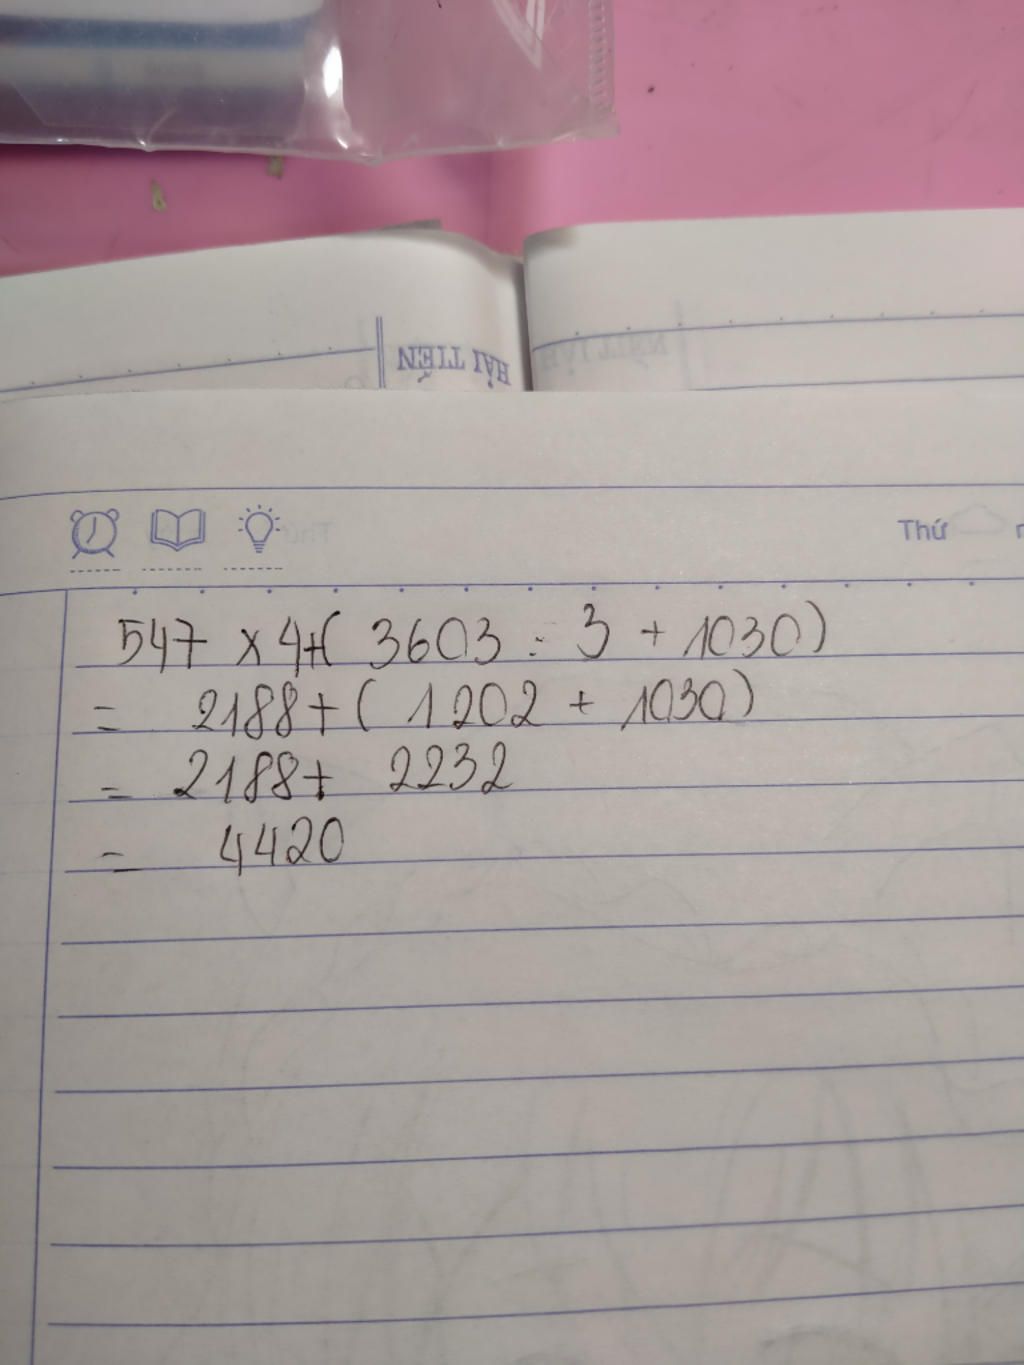 HẢI TIẾN
Thứ
547 x 4+( 3603 : 3 + 1030)
= 2188+ ( 1202 + 1030)
= 2188+ 2232
= 4420